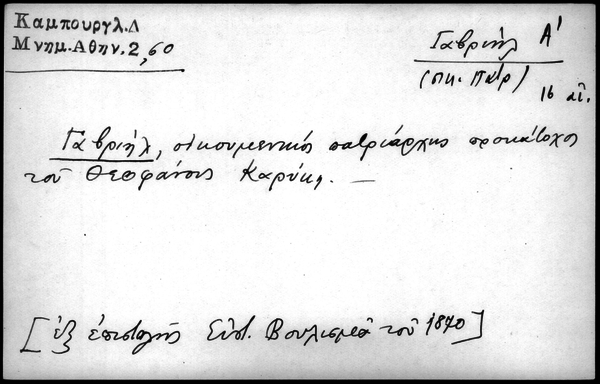 Καμπουργλ.Δ
Μνημ.Αθην.2,60
Γαβριήλ Α'
(Οικ. Πατρ)
16 αἰ.
Γαβριήλ, οἰκουμενικός πατριάρχης προκάτοχος
τοῦ Θεοφάνους Καρύκη. —
[ἐξ ἐπιστολῆς Εὐστ. Βουλισμᾶ τοῦ 1870]